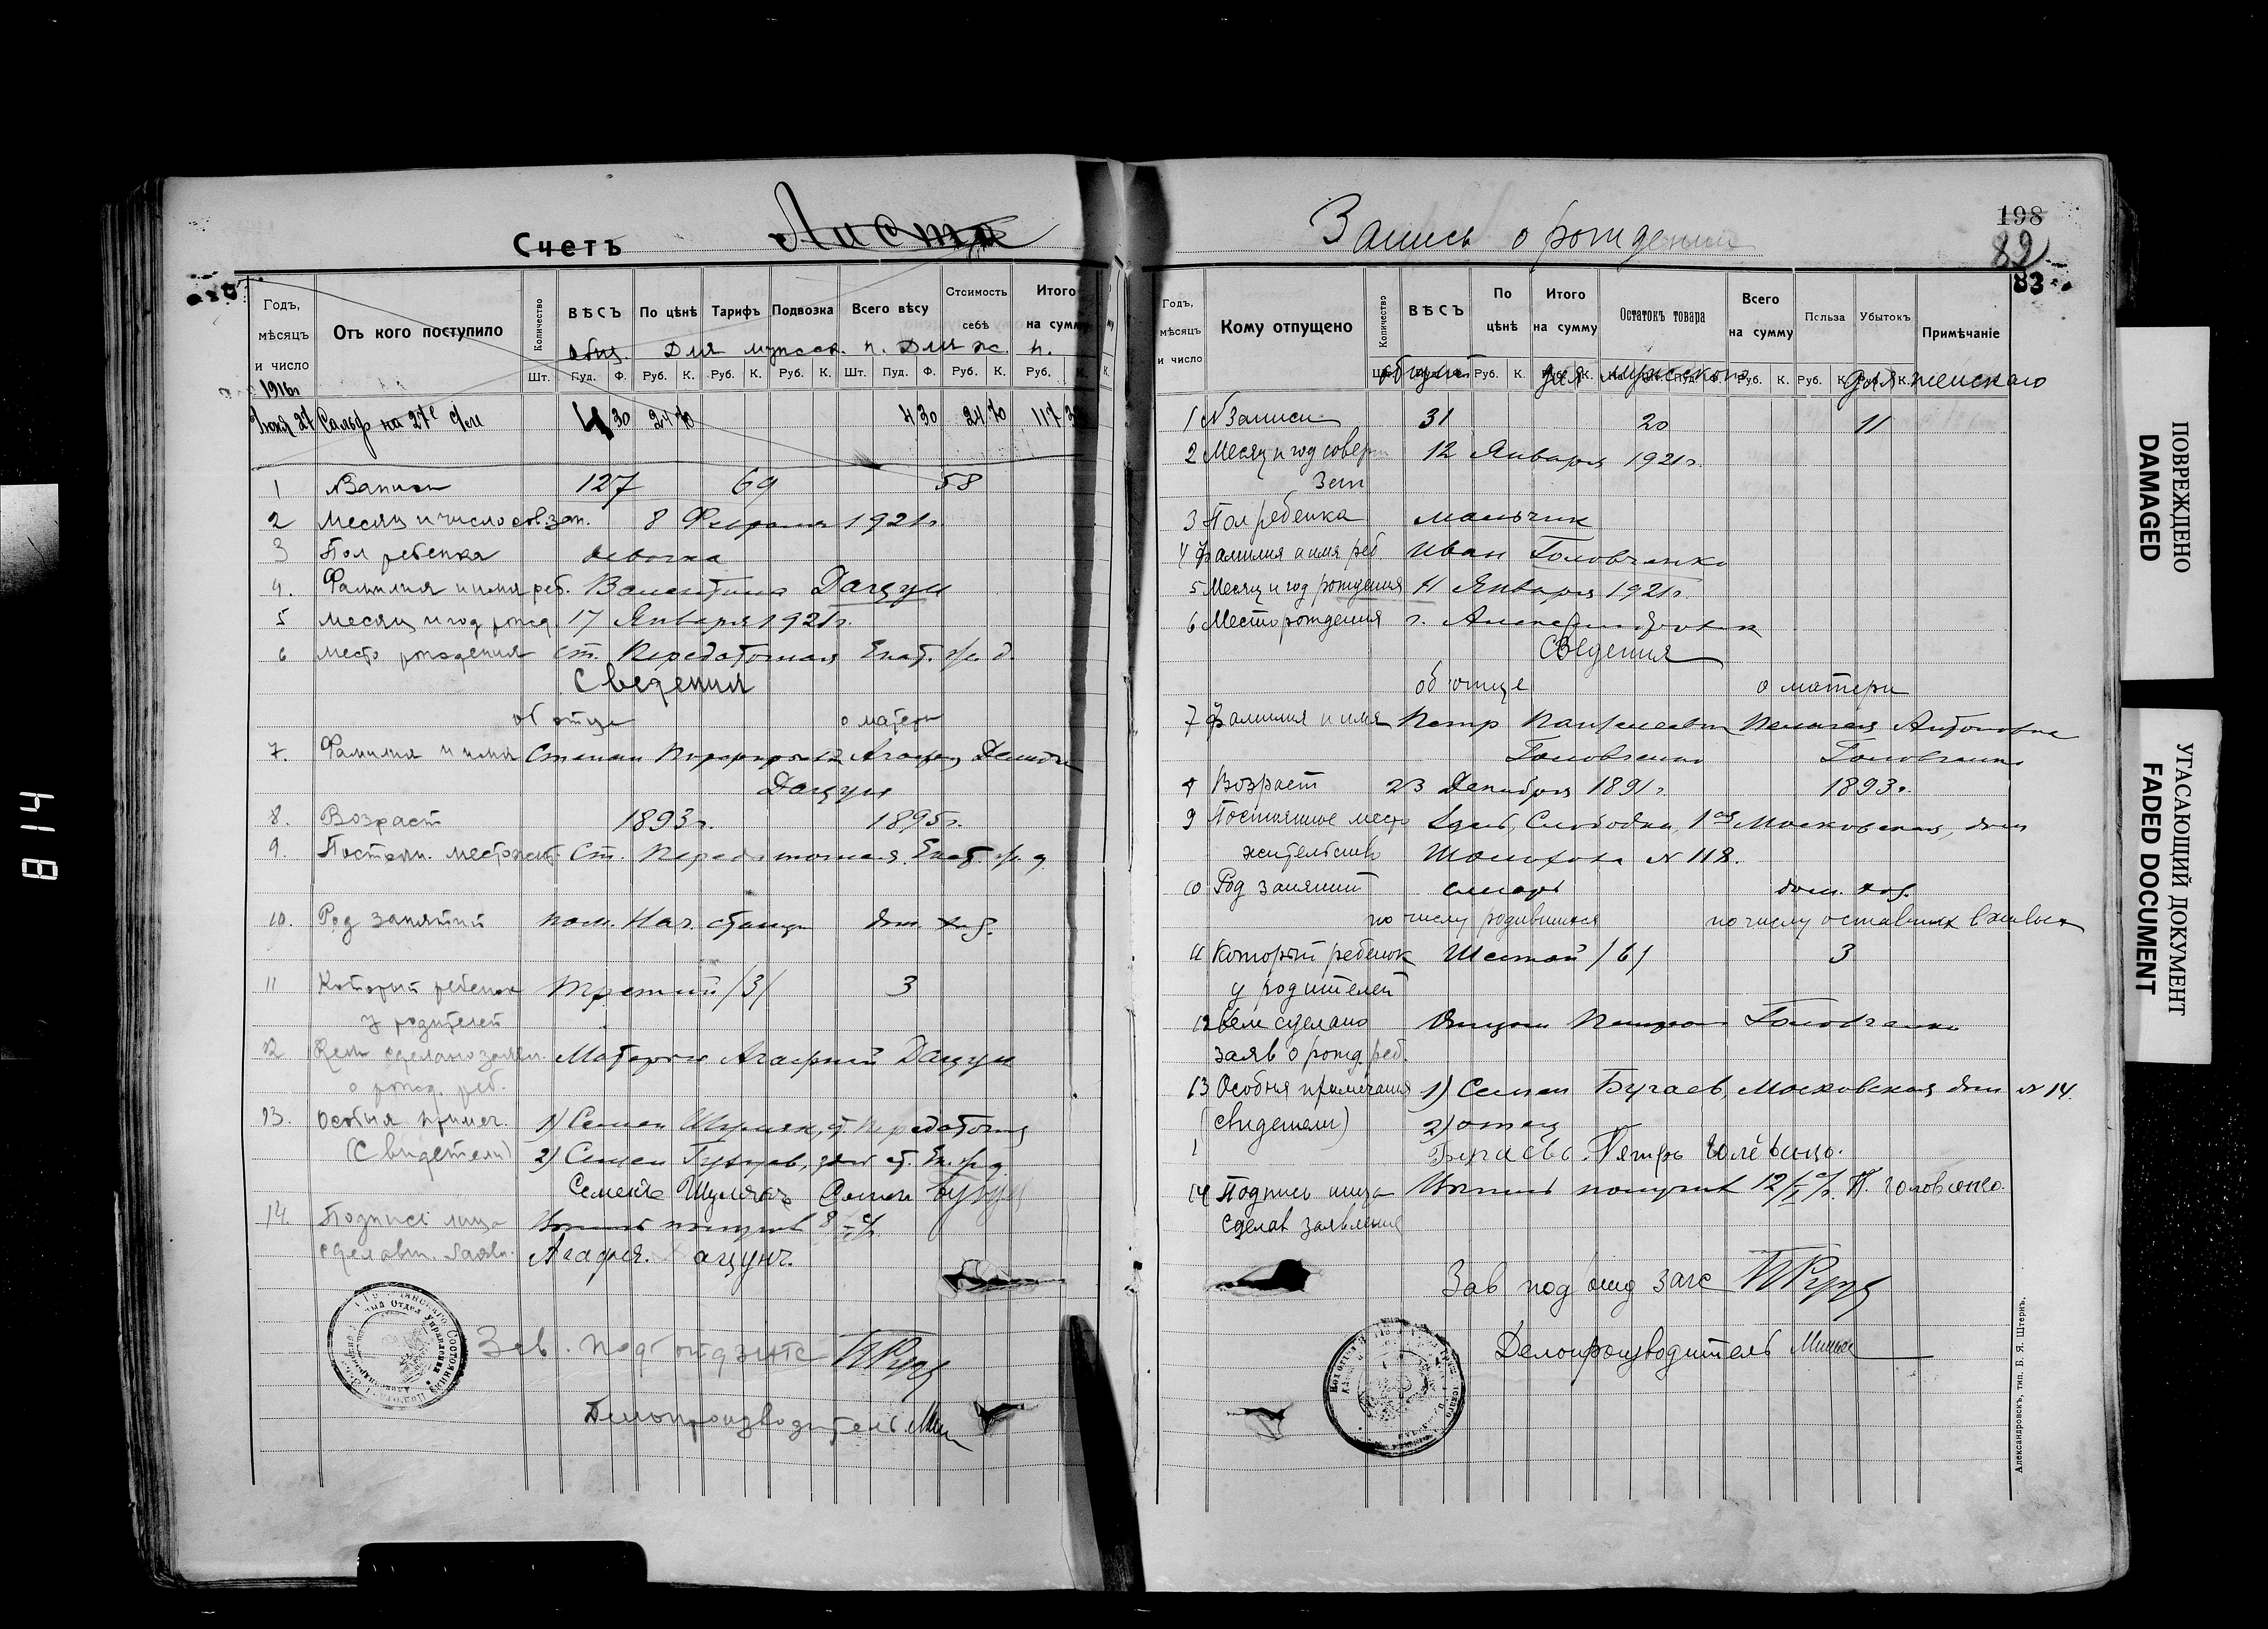 Счетъ Листа
Годъ, мѣсяцъ и число
Отъ кого поступило
Количество
ВѢСЪ
По цѣнѣ
Тарифъ
Подвозка
Всего вѣсу
Стоимость себѣ
Итого на сумму
общ. Для мужск. п. Для ж. п.
Шт. Пуд. Ф. Руб. К. Руб. К. Руб. К. Шт. Пуд. Ф. Руб. К. Руб. К.
1916г
Июня 27 Сальдо на 27е с/м 4 30 24 70 4 30 24 70 117 3
1 № Записи 127 69 58
2 Месяц и число сов. зап. 8 Февраля 1921г.
3 Пол ребенка девочка
4. Фамилия и имя реб. Валентина Дацун
5 Месяц и год рожд 17 Января 1921г.
6 Место рождения ст. Передаточная Екат. ж. д.
Сведения
об отце о матери
7. Фамилия и имя Степан Агафия
Дацун
8. Возраст 1893г. 1895г.
9. Постоян. местожит. Ст. Передаточная Екат. ж. д.
10. Род занятий пом. Нач. станции дом. хоз.
11 Который ребенок Третий /3/ 3
у родителей
12 Кем сделано заявл. Матерью Агафией Дацун
о рожд. реб.
13. Особыя примеч. 1) Семен Шумляк, ст. Передаточная
(Свидетели) 2) Семен
Семенъ Семен
14. Подпись лица Выпись получив 8/II с/г.
сделавш. заявл. Агафия. Дацунъ.
Зав. подотд загс
Делопроизводитель
Запись о рождении
198
82
83
Годъ, мѣсяцъ и число
Кому отпущено
Количество
ВѢСЪ
По цѣнѣ
Итого на сумму
Остатокъ товара
Всего на сумму
Польза
Убытокъ
Примѣчаніе
общий для мужского для женскаго
1 № Записи 31 20 11
2 Месяц и год соверш 12 Января 1921г.
Зап
3 Пол ребенка мальчик
4 Фамилия и имя реб Иван Головченко
5 Месяц и год рождения 11 Января 1921г.
6 Место рождения г. Александровск
Сведения
об отце о матери
7 Фамилия и имя Петр Пантелеевич Пелагея Антоновна
Головченко Головченко
8 Возраст 23 Декабря 1891г. 1893г.
9 Постоянное место здесь, Слободка, 1ая Московская, дом
жительство Шолохова № 118.
10 Род занятий слесарь дом. хоз.
по числу родившихся по числу оставших в живых
11 Который ребенок Шестой /6/ 3
у родителей
12 Кем сделано Отцом Петром Головченко
заяв о рожд. реб.
13 Особыя примечания 1) Семен Бугаев, Московская дом № 14.
(свидетели) 2) отец
Бугаевъ. Петръ Головченко.
14 Подпись лица Выпись получив 12/I с/г. П. Головченко.
сделав заявление
Зав под отд загс
Делопроизводитель
Александровскъ, тип. Б. Я. Штернъ.
ПОВРЕЖДЕНО
DAMAGED
УГАСАЮЩИЙ ДОКУМЕНТ
FADED DOCUMENT
814